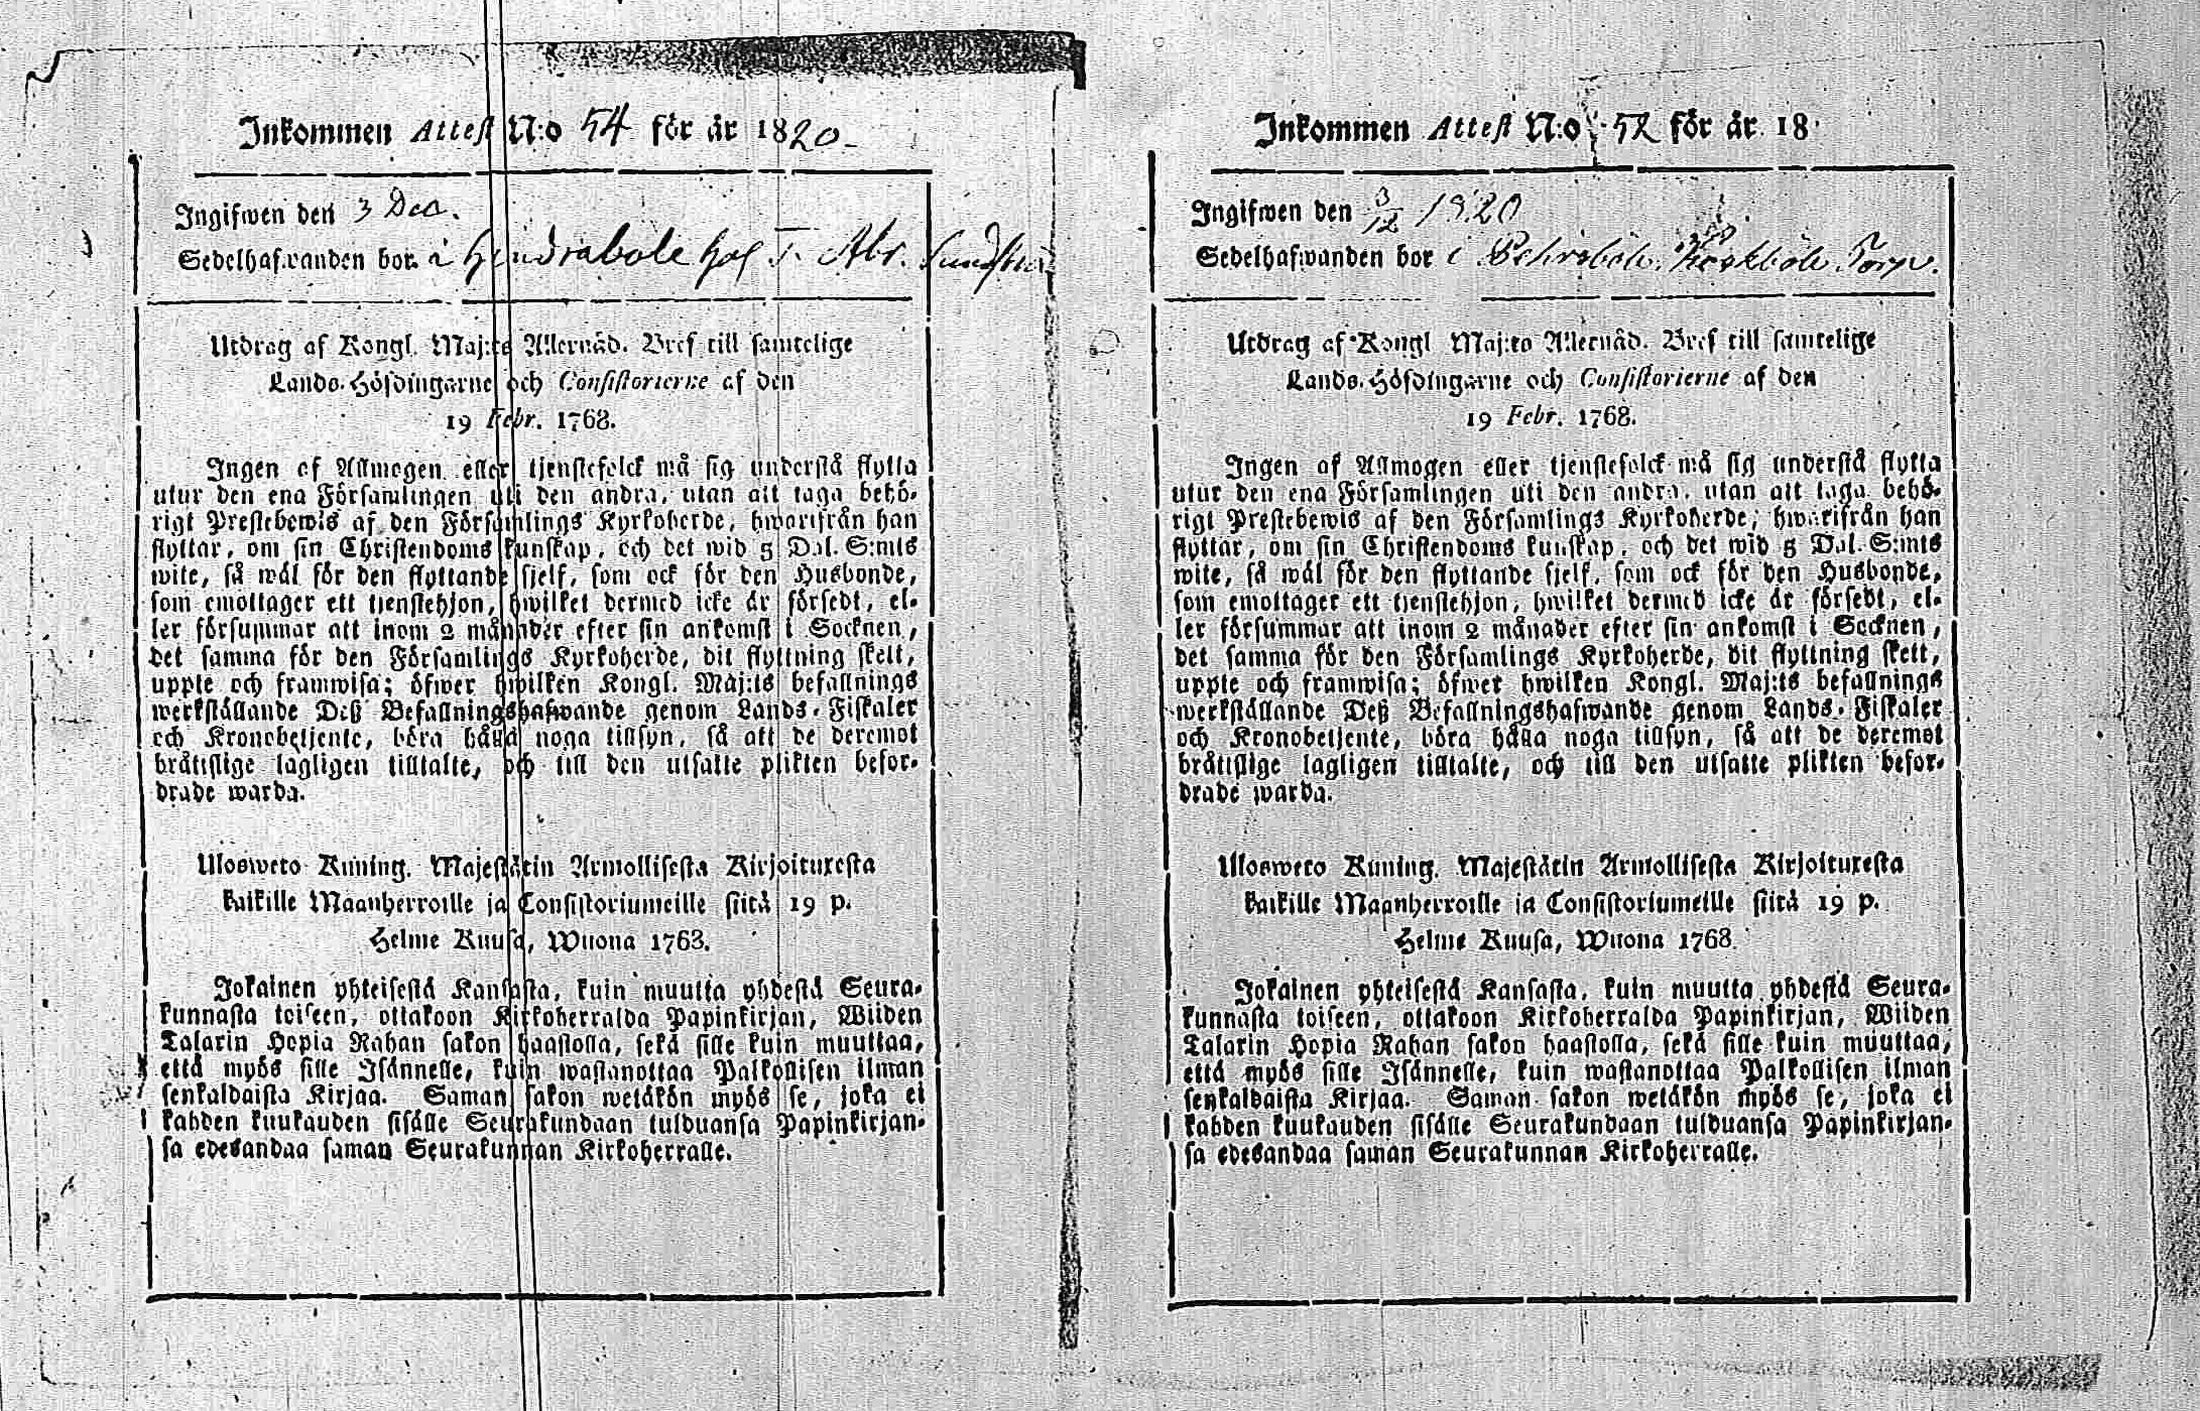 Inkommen Attest N:o 54 för år 1820
Ingifwen den 3 Dec.
Sedelhafwanden bor i
Utdrag af Kongl. Maj:ts Allernåd. Bref till samtelige
Lands-Höfdingarne och Consistorierne af den
19 Febr. 1768.
Ingen af Allmogen eller tjenstefolck må sig understå flytta
utur den ena Församlingen uti den andra, utan att taga behö-
rigt Prestebewis af den Församlings Kyrkoherde, hwarifrån han
flyttar, om sin Christendoms kunskap, och det wid 5 Dal. S:mts
wite, så wäl för den flyttande sjelf, som ock för den Husbonde,
som emottager ett tjenstehjon, hwilket dermed icke är försedt, el-
ler försummar att inom 2 månader efter sin ankomst i Socknen,
det samma för den Församlings Kyrkoherde, dit flyttning skett,
uppte och framwisa; öfwer hwilken Kongl. Maj:ts befallnings
werkställande Deß Befallningshafwande genom Lands-Fiskaler
och Kronobetjente, böra hålla noga tillsyn, så att de deremot
bråttslige lagligen tilltalte, och till den utsatte plikten befor-
drade warda.
Ulosweto Kuning. Majestätin Armollisesta Kirjoituxesta
kaikille Maanherroille ja Consistoriumeille siitä 19 p.
Helme Kuusa, Wuona 1768.
Jokainen yhteisestä Kansasta, kuin muutta yhdestä Seura-
kunnasta toiseen, ottakoon Kirkoherralda Papinkirjan, Wiiden
Talarin Hopia Rahan sakon haastolla, sekä sille kuin muuttaa,
että myös sille Isännelle, kuin wastanottaa Palkollisen ilman
senkaldaista Kirjaa. Saman sakon wetäkön myös se, joka ei
kahden kuukauden sisälle Seurakundaan tulduansa Papinkirjan-
sa edesandaa saman Seurakunnan Kirkoherralle.
Inkommen Attest N:o 52 för år 18
Ingifwen den 3/12 1820
Sedelhafwanden bor i
Utdrag af Kongl Maj:ts Allernåd. Bref till samtelige
Lands-Höfdingarne och Consistorierne af den
19 Febr. 1768.
Ingen af Allmogen eller tjenstefolck må sig understå flytta
utur den ena Församlingen uti den andra, utan att taga behö-
rigt Prestebewis af den Församlings Kyrkoherde, hwarifrån han
flyttar, om sin Christendoms kunskap, och det wid 5 Dal. S:mts
wite, så wäl för den flyttande sjelf, som ock för den Husbonde,
som emottager ett tjenstehjon, hwilket dermed icke är försedt, el-
ler försummar att inom 2 månader efter sin ankomst i Socknen,
det samma för den Församlings Kyrkoherde, dit flyttning skett,
uppte och framwisa; öfwer hwilken Kongl. Maj:ts befallnings
werkställande Deß Befallningshafwande genom Lands-Fiskaler
och Kronobetjente, böra hålla noga tillsyn, så att de deremot
bråttslige lagligen tilltalte, och till den utsatte plikten befor-
drade warda.
Ulosweto Kuning. Majestätin Armollisesta Kirjoituxesta
kaikille Maanherroille ja Consistoriumeille siitä 19 p.
Helme Kuusa, Wuona 1768
Jokainen yhteisestä Kansasta, kuin muutta yhdestä Seura-
kunnasta toiseen, ottakoon Kirkoherralda Papinkirjan, Wiiden
Talarin Hopia Rahan sakon haastolla, sekä sille kuin muuttaa,
että myös sille Isännelle, kuin wastanottaa Palkollisen ilman
senkaldaista Kirjaa. Saman sakon wetäkön myös se, joka ei
kahden kuukauden sisälle Seurakundaan tulduansa Papinkirjan-
sa edesandaa saman Seurakunnan Kirkoherralle.